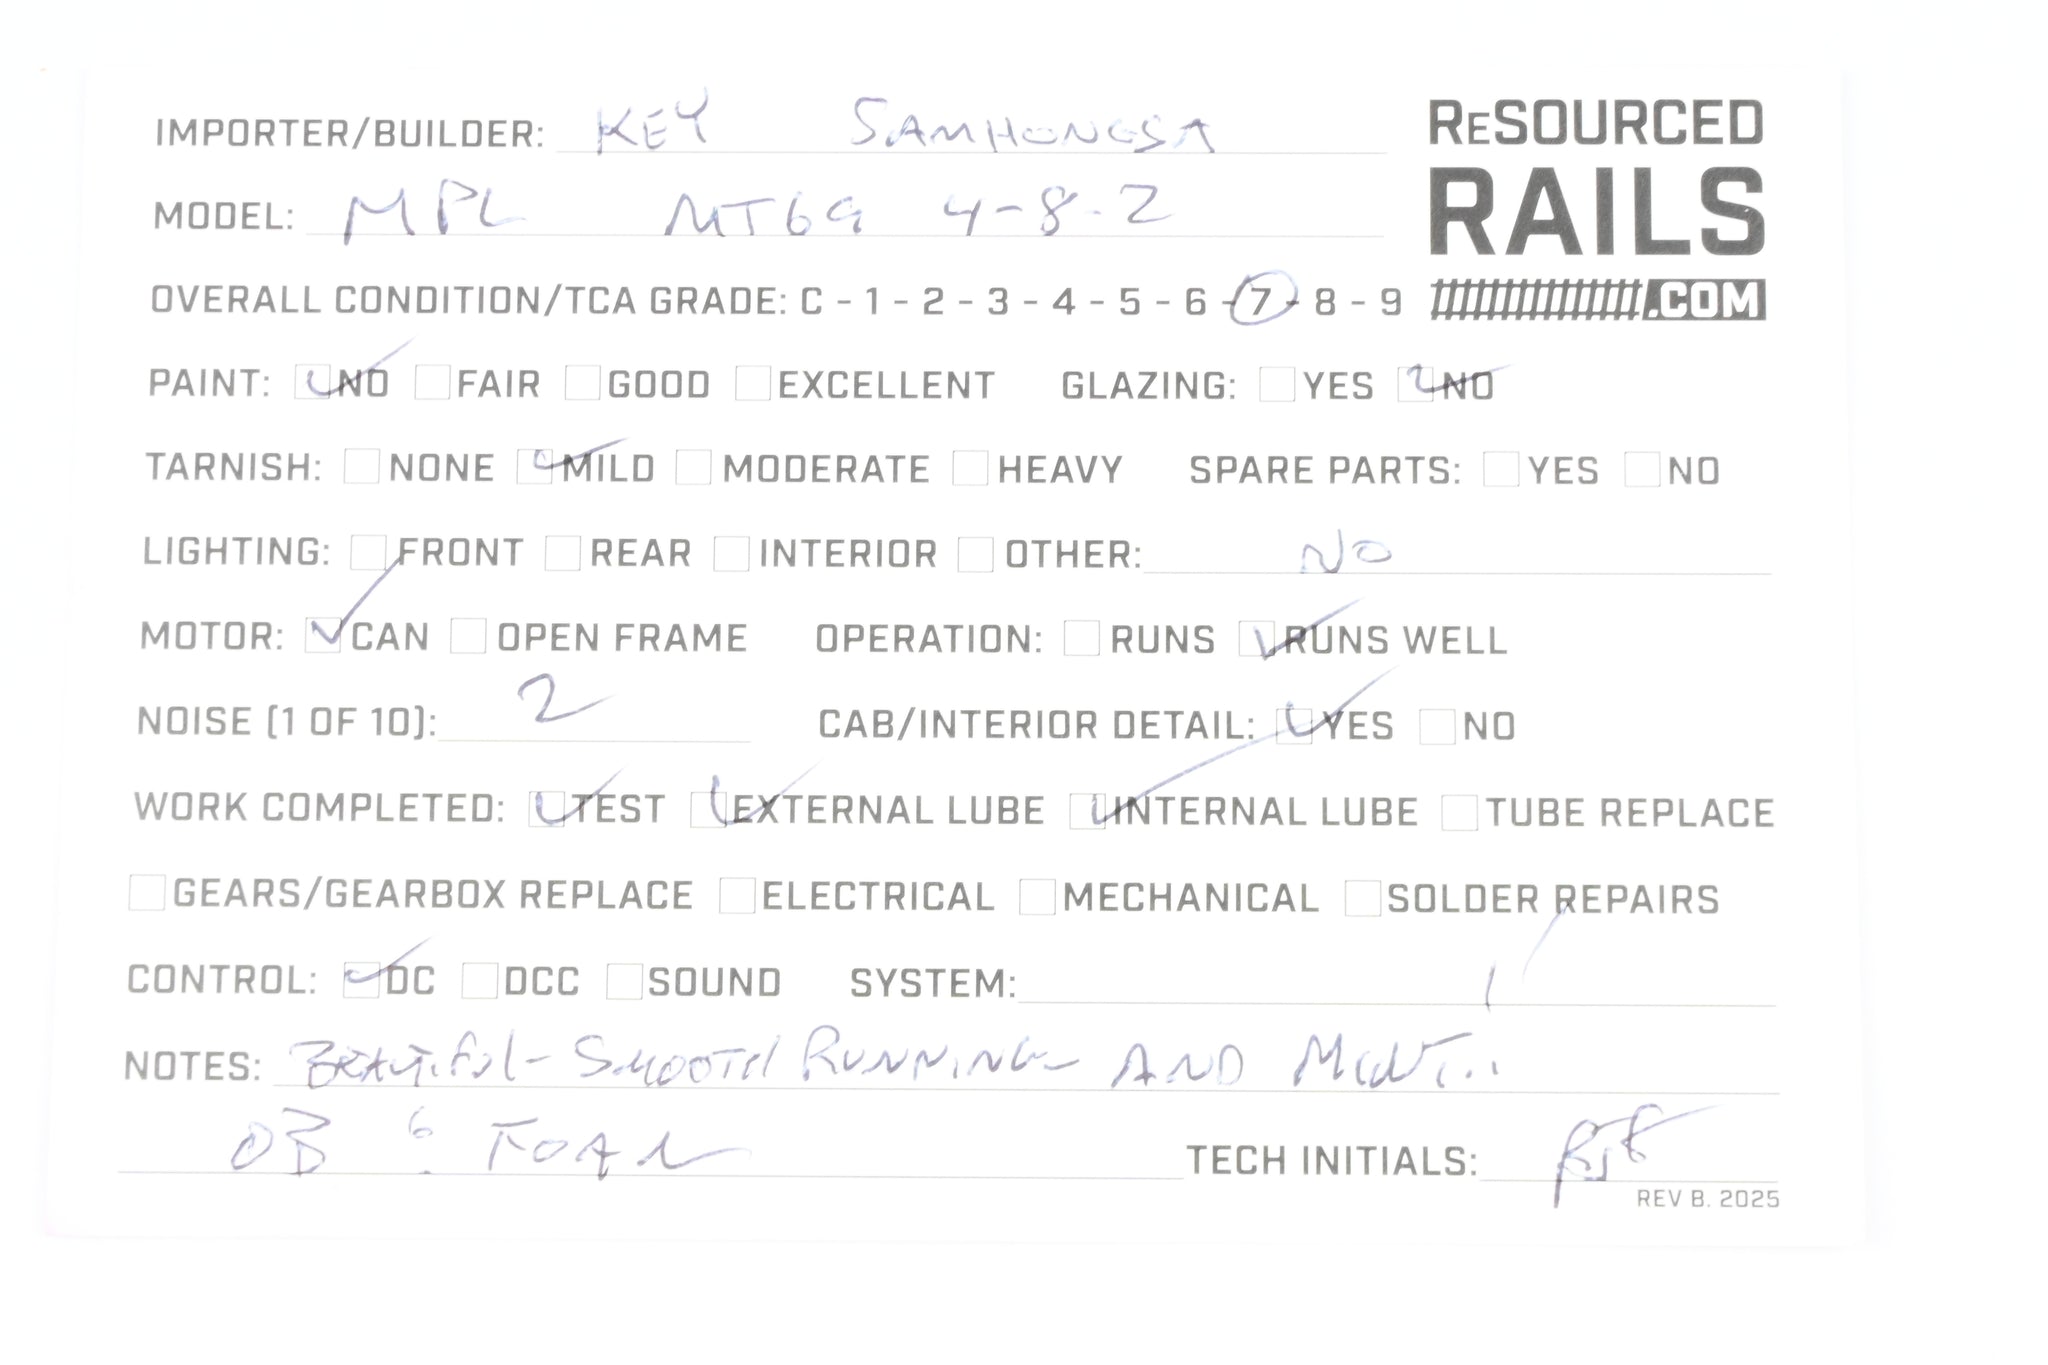 IMPORTER/BUILDER: KEY SAMHONGSA
ReSOURCED
RAILS
.COM
MODEL: MPL MT69 4-8-2
OVERALL CONDITION/TCA GRADE: C - 1 - 2 - 3 - 4 - 5 - 6 - 7 - 8 - 9
PAINT: NO FAIR GOOD EXCELLENT GLAZING: YES NO
TARNISH: NONE MILD MODERATE HEAVY SPARE PARTS: YES NO
LIGHTING: FRONT REAR INTERIOR OTHER: NO
MOTOR: CAN OPEN FRAME OPERATION: RUNS RUNS WELL
NOISE (1 OF 10): 2 CAB/INTERIOR DETAIL: YES NO
WORK COMPLETED: TEST EXTERNAL LUBE INTERNAL LUBE TUBE REPLACE
GEARS/GEARBOX REPLACE ELECTRICAL MECHANICAL SOLDER REPAIRS
CONTROL: DC DCC SOUND SYSTEM:
NOTES: BEAUTIFUL - SMOOTH RUNNING AND MINT..
OB & FOAM TECH INITIALS:
REV B. 2025